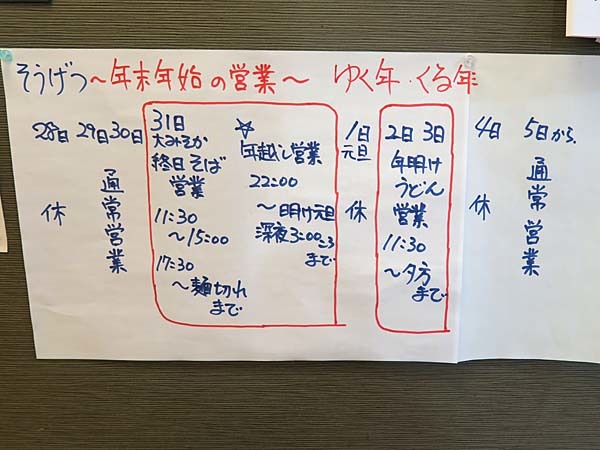 そうげつ〜年末年始の営業〜 ゆく年・くる年
28日
休
29日30日
通常営業
31日
大みそか
終日そば
営業
11:30
〜15:00
17:30
〜麺切れ
まで
☆
年越し営業
22:00
〜明け元旦
深夜3:00ころ
まで
1日
元旦
休
2日 3日
年明け
うどん
営業
11:30
〜夕方
まで
4日
休
5日から、
通常営業